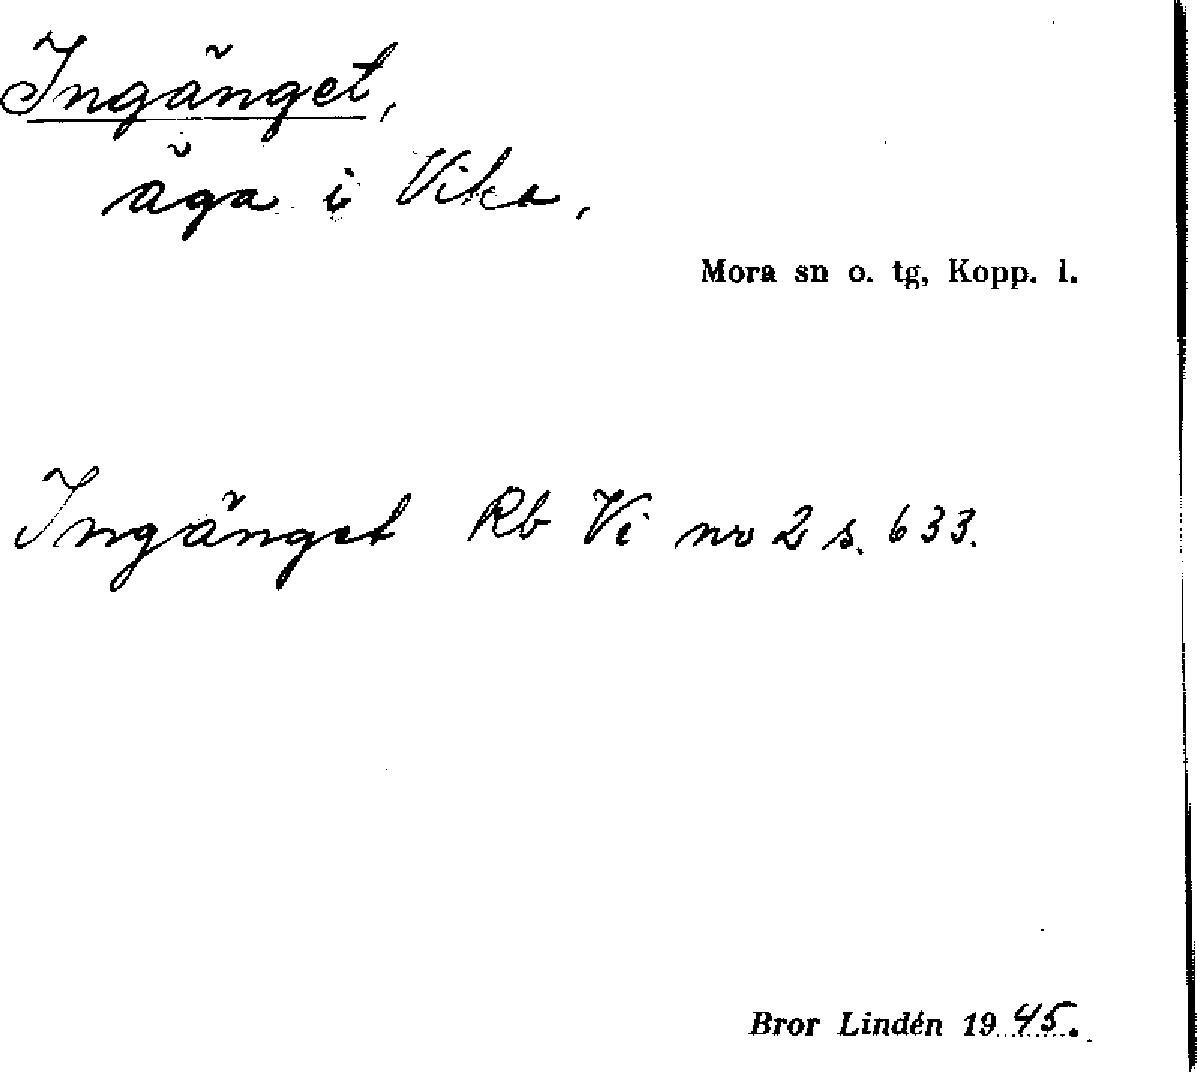 Ingänget,
äga i Vika,
Mora sn o. tg, Kopp. l.
Ingänget Rb Vi nr 2 s. 633.
Bror Lindén 1945.